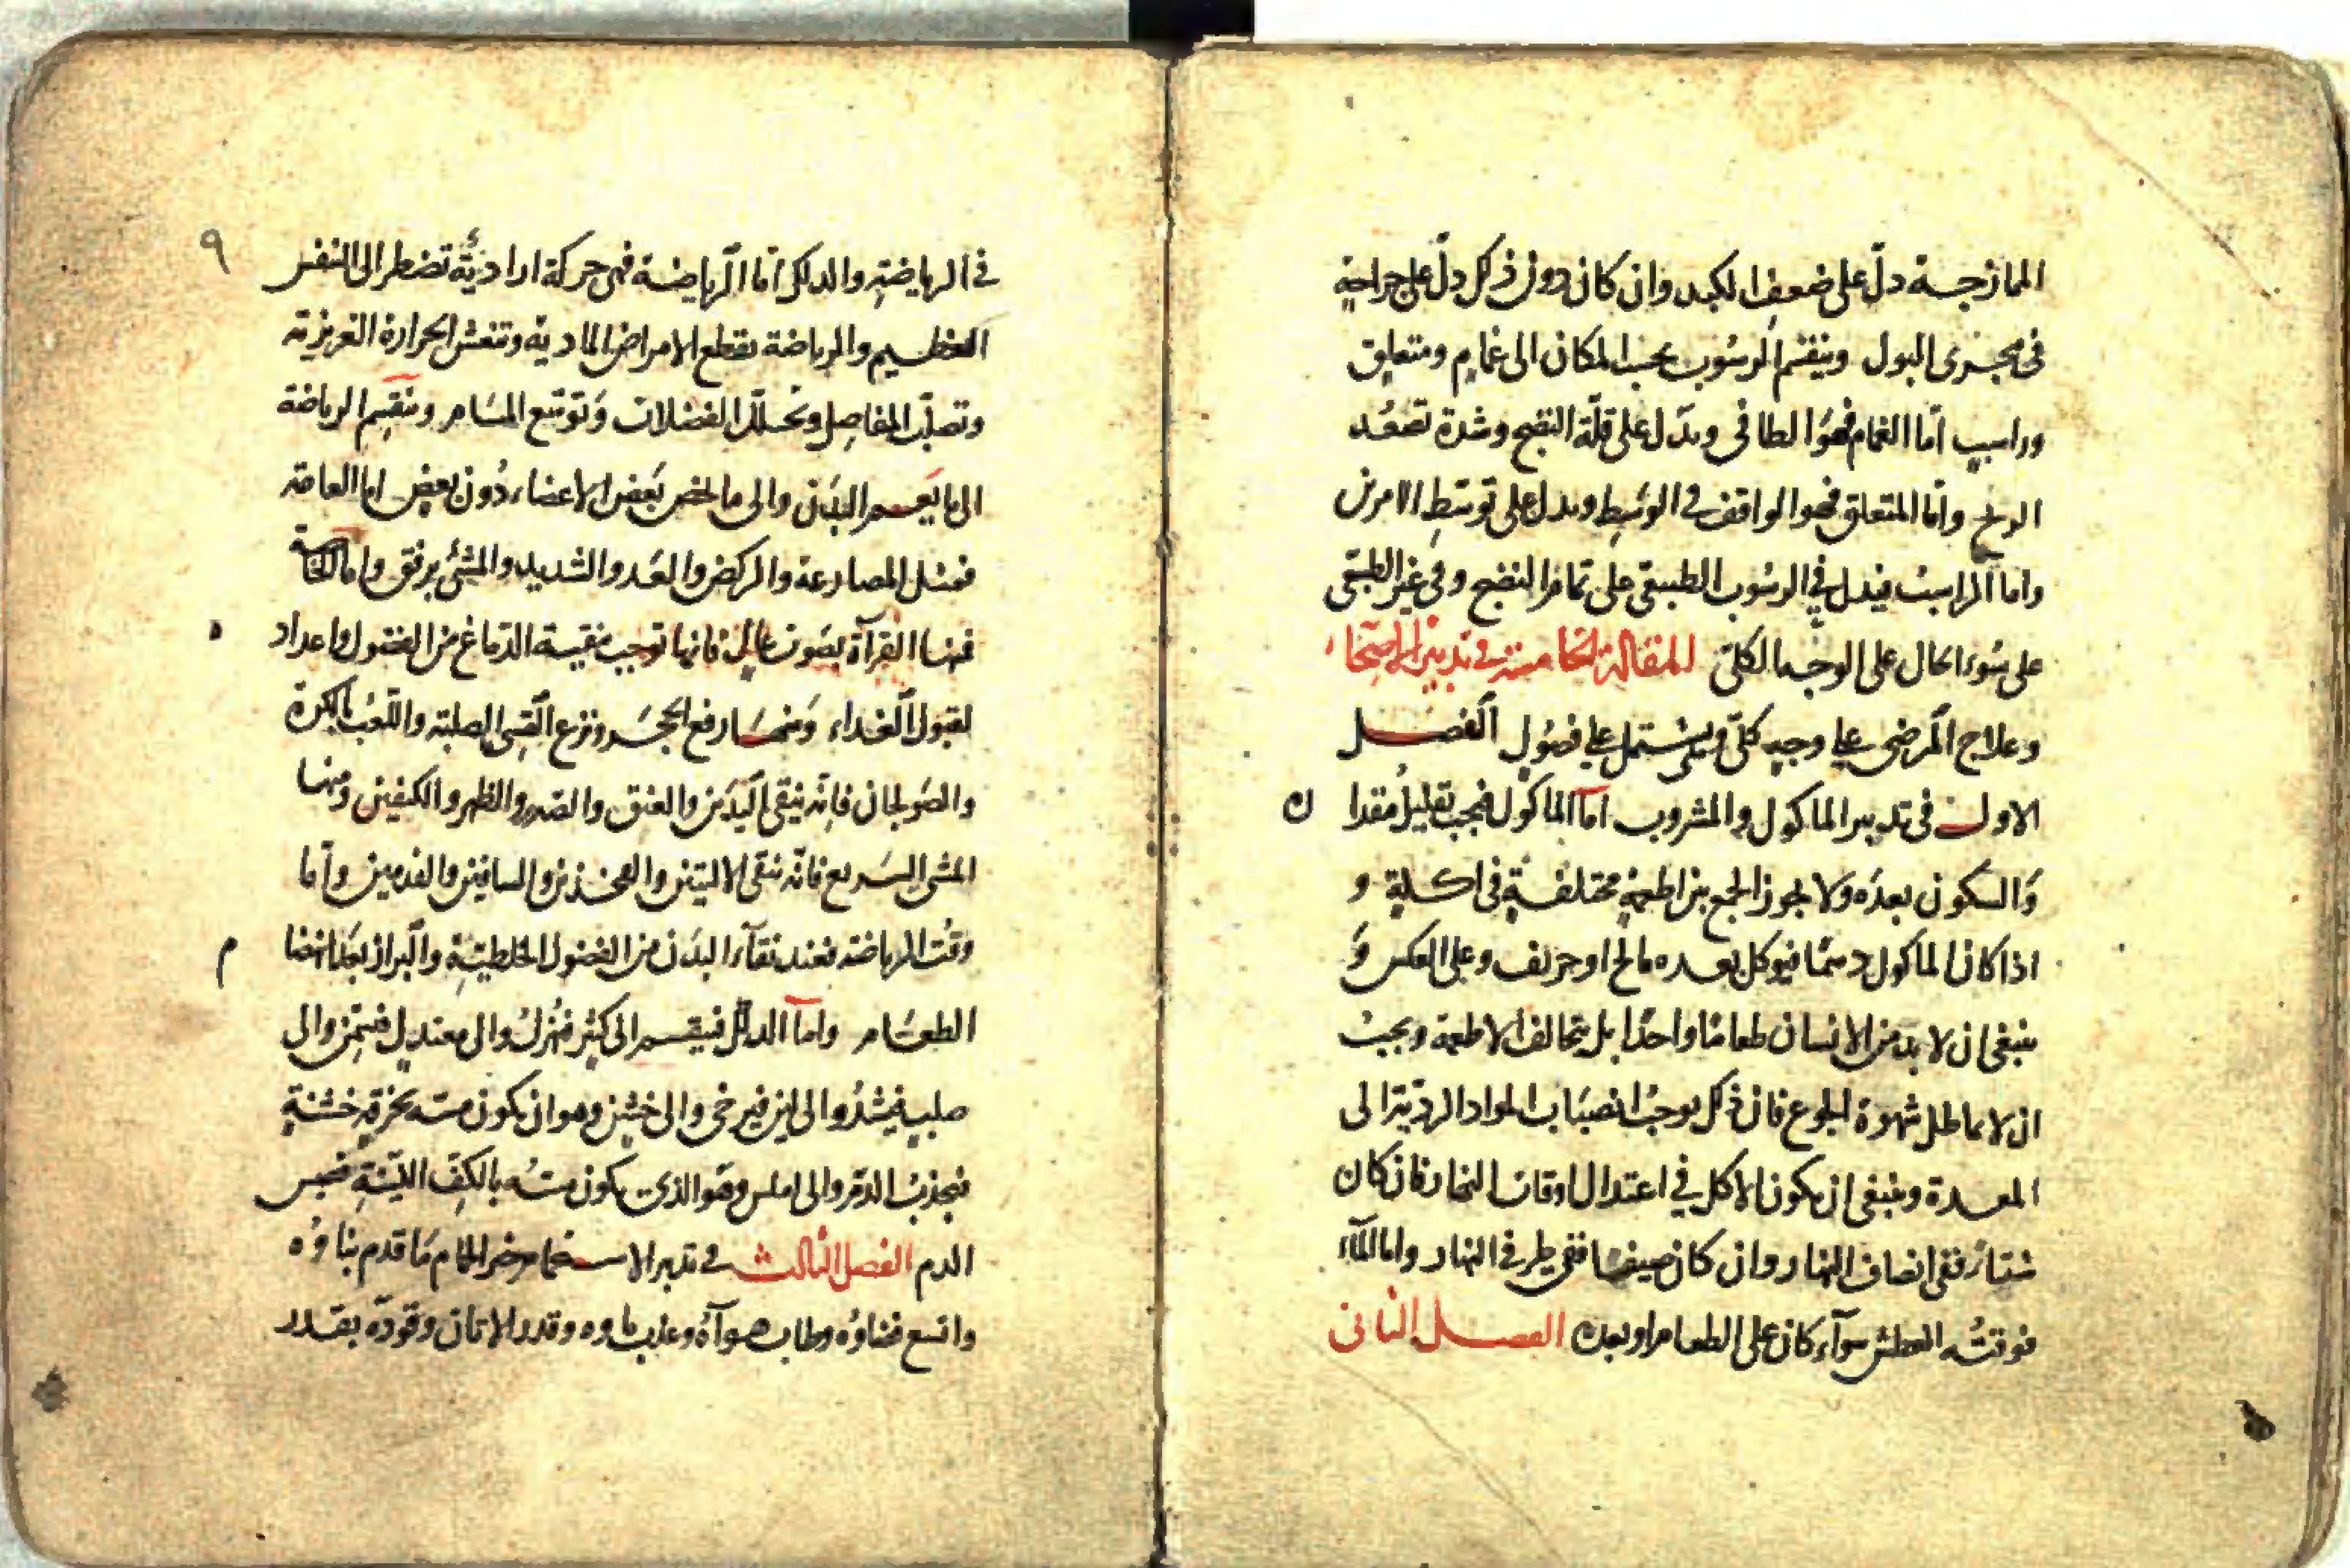 الممازجة دلّ على ضعف الكبد وان كان دون ذلك دلّ على جراحة
فى مجرى البول وينقسم الرسوب بحسب المكان الى غمام ومتعلق
وراسب امّا الغمام فهو الطافى ويدل على قلّة النضج وشدة تصعّد
الريح وامّا المتعلق فهو الواقف فى الوسط ويدل على توسط الامرين
واما الراسب فيدل فى الرسوب الطبيعى على تمام النضج وفى غير الطبيعى
على سوء الحال على الوجه الكلى المقالة الخامسة فى تدبير الاصحّاء
وعلاج المرضى على وجه كلّى ويشتمل على فصول الفصل
الاول فى تدبير الماكول والمشروب امّا الماكول فيجب تقليل مقداره
والسكون بعده ولا يجوز الجمع بين اطعمة مختلفة فى اكلة و
اذا كان الماكول دسمًا فيوكل بعده مالح او حريف وعلى العكس وَ
ينبغى ان لا يدمن الانسان طعامًا واحدًا بل يخالف الاطعمة ويجب
ان لا يماطل شهوة الجوع فان ذلك يوجب انصباب المواد الرديّة الى
المعدة وينبغى ان يكون الاكل فى اعتدال اوقات النهار فان كان
شتاءً ففى انصاف النهار وان كان صيفًا ففى طرفى النهار واما المآء
فوقته العطش سوآء كان على الطعام او بعده الفصل الثانى
٩
فى الرياضة والدلك امّا الرياضة فهى حركة اراديّة تضطر الى النفس
العظيم والرياضة تقطع الامراض المادية وتنعش الحرارة الغريزية
وتصلّب المفاصل وتحلّل الفضلات وَتوسّع المسَام وتنقسم الرياضة
الى ما يَعم البدَن والى ما يخص بَعض الاعضاء دُون بعض اما العامة
فمثل المصارعة والركض والعَدو الشديد والمشى برفق واما الخاصّة
فمنها القرآة بصَوت عالٍ فانها توجب تنقية الدّماغ من الفضول واعداده
لقبول الغذاء وَمنهَا رفع الحجَر ونزع القسى الصلبة واللّعب بالكرة
والصَولجان فانّه ينقى اليَدين والعنق والصّدر والظهر والكتفين ومنها
المشى السَريع فانّه ينقى الاليتين والفخذين والساقين والقدمين وأما
وقت الرياضة فعند نقآء البدَن من الفضول الخلطيّة والبراز بعد انهضام
الطعَام وامّا الدلك فينقسم الى كثير فيُهزل والى معتدل فيسمّن والى
صلبٍ فيشدّ والى لين فيرخى والى خشن وهو ان يكون مسّه بخرقة خشنةٍ
فيجذب الدّم والى املس وهو الذى يكون مسّه بالكف الليّنة فيحبس
الدم الفصل الثالث فى تدبير الاستحمام خير الحمام مَا قدم بناؤه
واتسع فناؤه وطاب هوآؤه وعذب ماؤه وقدر الاتّان وقوده بقدر